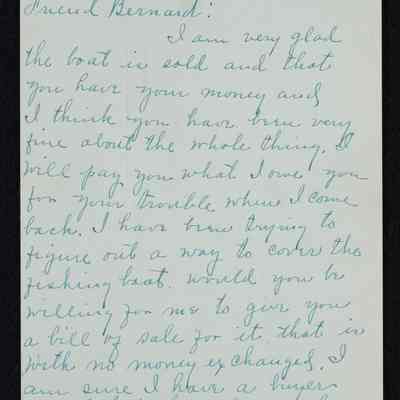 Friend Bernard:
I am very glad
the boat is sold and that
you have your money and
I think you have been very
fine about the whole thing. I
will pay you what I owe you
for your trouble when I come
back. I have been trying to
figure out a way to cover the
fishing boat. would you be
willing for me to give you
a bill of sale for it that is
with no money exchanged. I
am sure I have a buyer